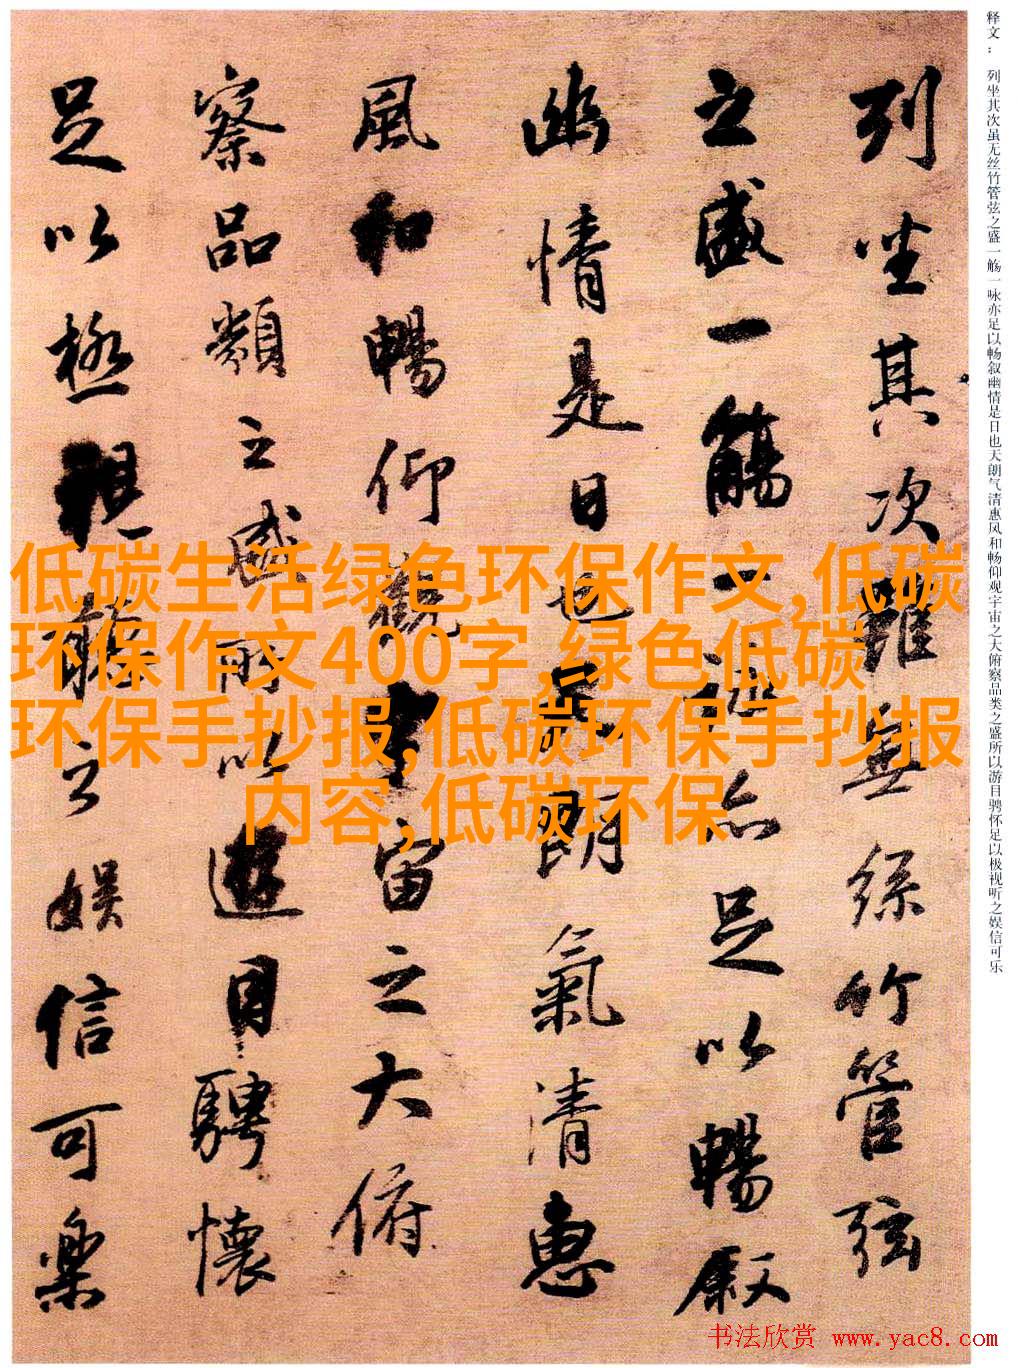 释文： 列坐其次虽无丝竹管弦之盛一觞一咏亦足以畅叙幽情是日也天朗气清惠风和畅仰观宇宙之大俯察品类之盛所以游目骋怀足以极视听之娱信可乐
列坐其次雖無絲竹管弦
之盛一觴一詠亦足以暢叙
幽情是日也天朗氣清惠
風和暢仰觀宇宙之大俯
察品類之盛所以遊目騁懷
足以極視聽之娱信可樂
低碳生活绿色环保作文,低碳
环保作文400字,绿色低碳
环保手抄报,低碳环保手抄报
内容,低碳环保
书法欣赏 www.yac8.com